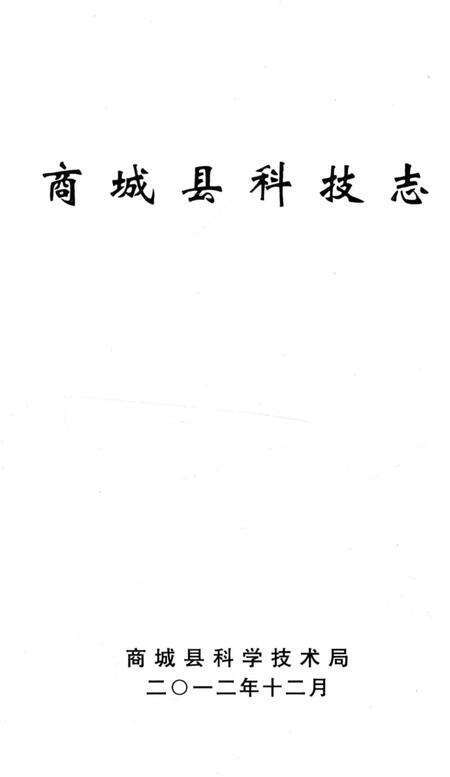 商城县科技志
商城县科学技术局
二〇一二年十二月